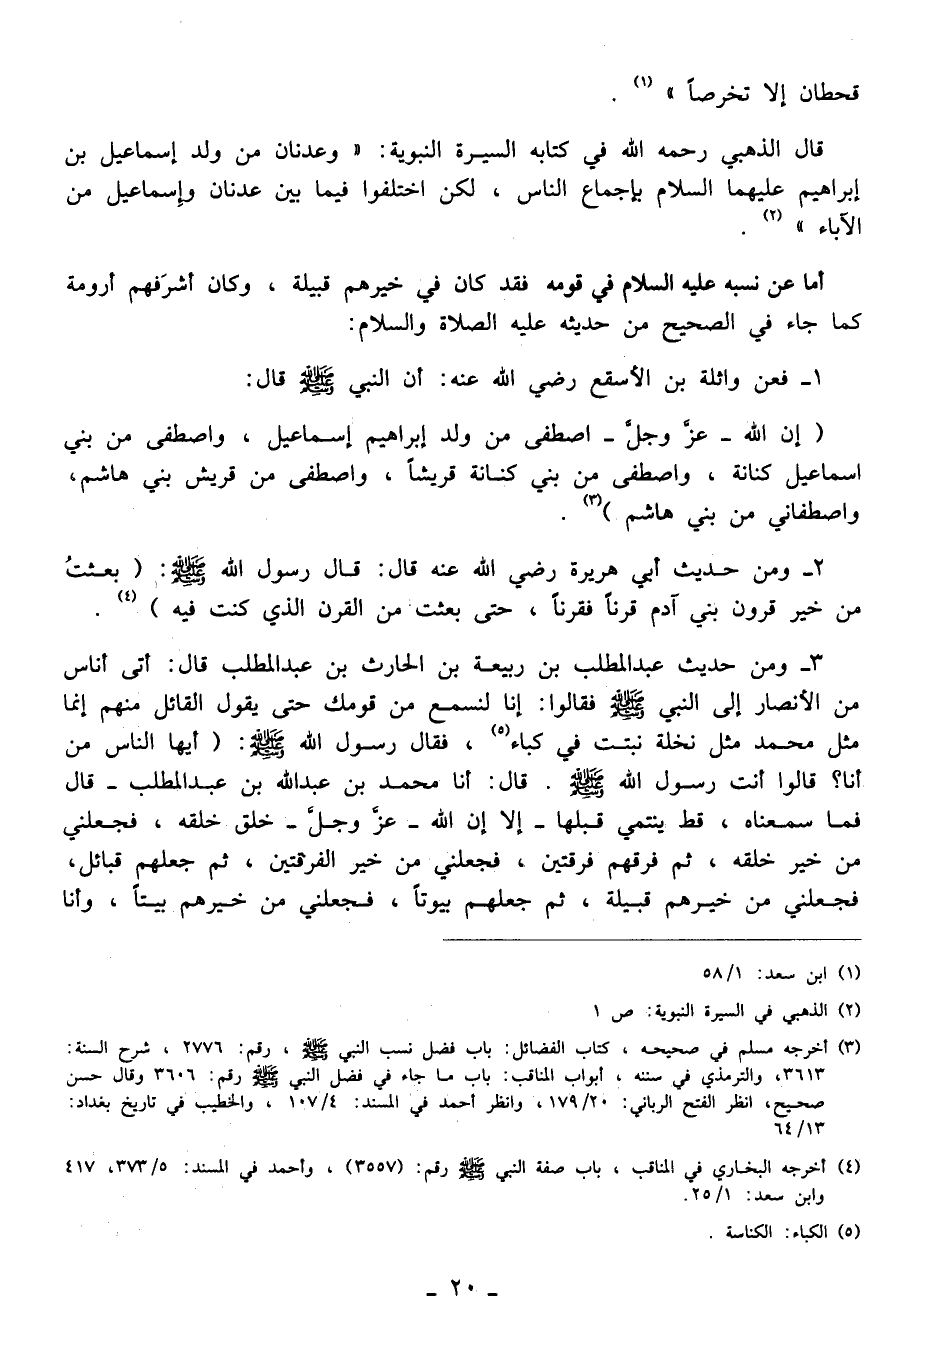 قحطان إلا تخرصاً » (١) .
قال الذهبي رحمه الله في كتابه السيرة النبوية: « وعدنان من ولد إسماعيل بن
إبراهيم عليهما السلام بإجماع الناس ، لكن اختلفوا فيما بين عدنان وإسماعيل من
الآباء » (٢) .
أما عن نسبه عليه السلام في قومه فقد كان في خيرهم قبيلة ، وكان أشرَفهم أرومة
كما جاء في الصحيح من حديثه عليه الصلاة والسلام:
١ـ فعن واثلة بن الأسقع رضي الله عنه: أن النبي ﷺ قال:
( إن الله ـ عزَّ وجلَّ ـ اصطفى من ولد إبراهيم إسماعيل ، واصطفى من بني
اسماعيل كنانة ، واصطفى من بني كنانة قريشاً ، واصطفى من قريش بني هاشم،
واصطفاني من بني هاشم )(٣) .
٢ـ ومن حديث أبي هريرة رضي الله عنه قال: قال رسول الله ﷺ: ( بعثتُ
من خير قرون بني آدم قرناً فقرناً ، حتى بعثت من القرن الذي كنت فيه ) (٤) .
٣ـ ومن حديث عبدالمطلب بن ربيعة بن الحارث بن عبدالمطلب قال: أتى أناس
من الأنصار إلى النبي ﷺ فقالوا: إنا لنسمع من قومك حتى يقول القائل منهم إنما
مثل محمد مثل نخلة نبتت في كباء(٥) ، فقال رسول الله ﷺ: ( أيها الناس من
أنا؟ قالوا أنت رسول الله ﷺ . قال: أنا محمد بن عبدالله بن عبدالمطلب ـ قال
فما سمعناه ، قط ينتمي قبلها ـ إلا إن الله ـ عزَّ وجلَّ ـ خلق خلقه ، فجعلني
من خير خلقه ، ثم فرقهم فرقتين ، فجعلني من خير الفرقتين ، ثم جعلهم قبائل،
فجعلني من خيرهم قبيلة ، ثم جعلهم بيوتاً ، فجعلني من خيرهم بيتاً ، وأنا
(١) ابن سعد: ٥٨/١
(٢) الذهبي في السيرة النبوية: ص ١
(٣) أخرجه مسلم في صحيحه ، كتاب الفضائل: باب فضل نسب النبي ﷺ ، رقم: ٢٧٧٦ ، شرح السنة:
٣٦١٣، والترمذي في سننه ، أبواب المناقب: باب ما جاء في فضل النبي ﷺ رقم: ٣٦٠٦ وقال حسن
صحيح، انظر الفتح الرباني: ١٧٩/٢٠، وانظر أحمد في المسند: ١٠٧/٤ ، والخطيب في تاريخ بغداد:
٦٤/١٣
(٤) أخرجه البخاري في المناقب ، باب صفة النبي ﷺ رقم: (٣٥٥٧) ، وأحمد في المسند: ٣٧٣/٥، ٤١٧
وابن سعد: ٢٥/١.
(٥) الكباء: الكناسة .
ـ ٢٠ ـ